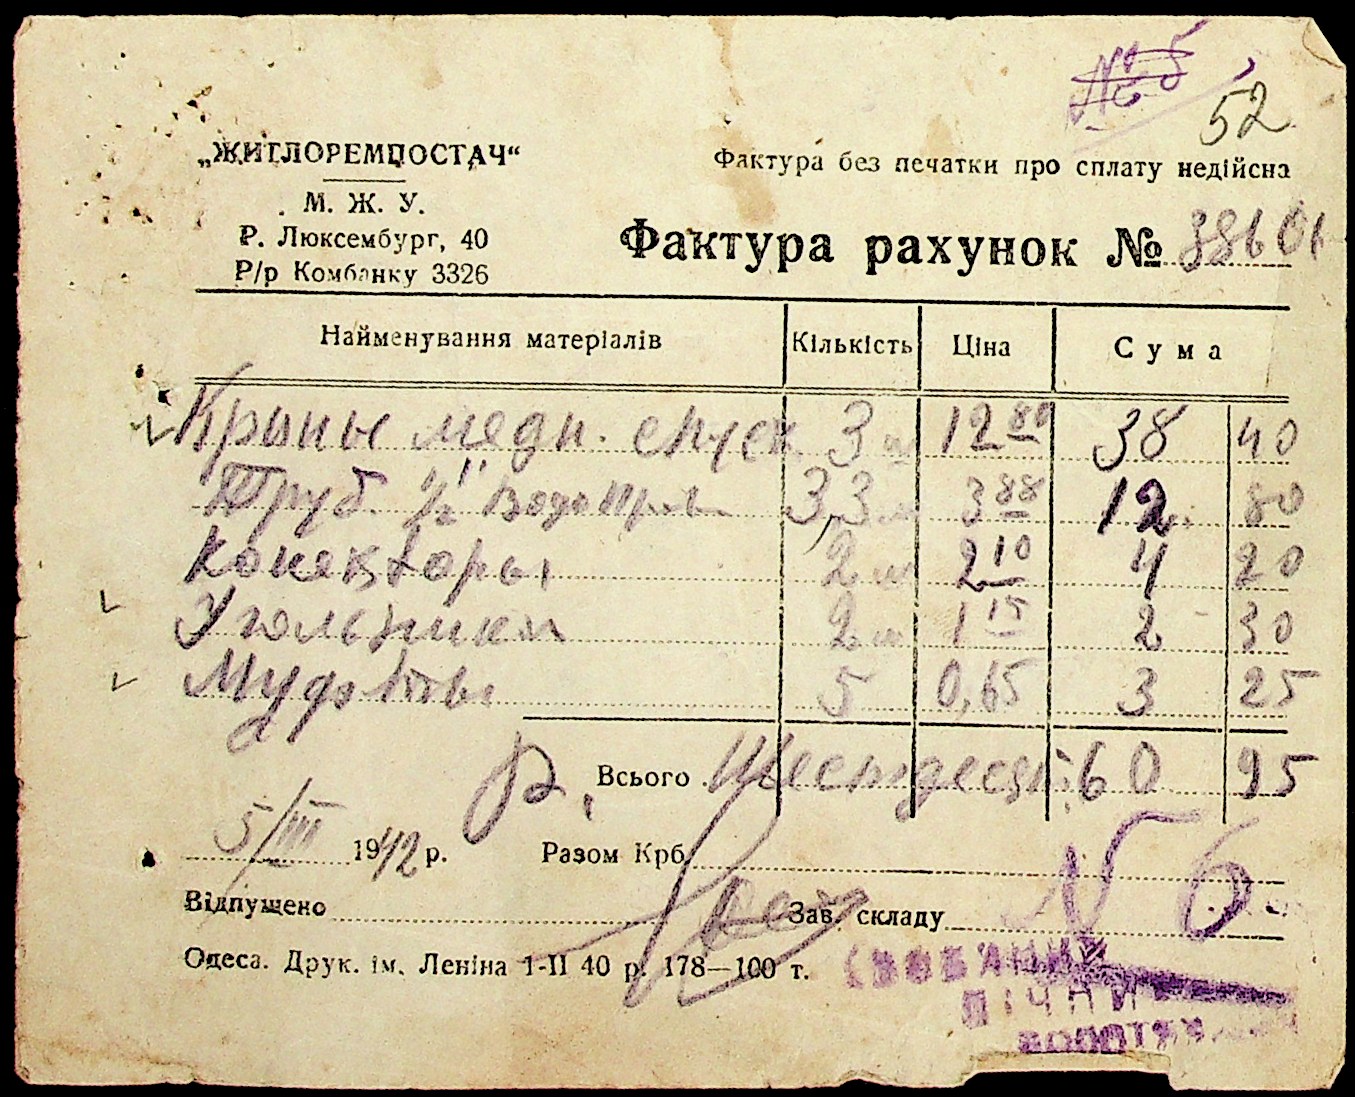 № 5
52
„ЖИТЛОРЕМПОСТАЧ“
Фактура без печатки про сплату недійсна
М. Ж. У.
Р. Люксембург, 40
Р/р Комбанку 3326
Фактура рахунок №
Найменування матеріалів Кількість Ціна Сума
Краны медн. спуск 3 ш 12 80 38 40
Труб. 1/2" водопров 3,3 м 3 88 12 80
Конекторы 2 ш 2 10 4 20
Угольники 2 ш 1 15 2 30
Муфты 5 0,65 3 25
Р. Всього Шестдесят 60 95
5/III 1942 р. Разом Крб.
N 6
Відпущено Зав. складу
Одеса. Друк. ім. Леніна 1-II 40 р. 178—100 т.